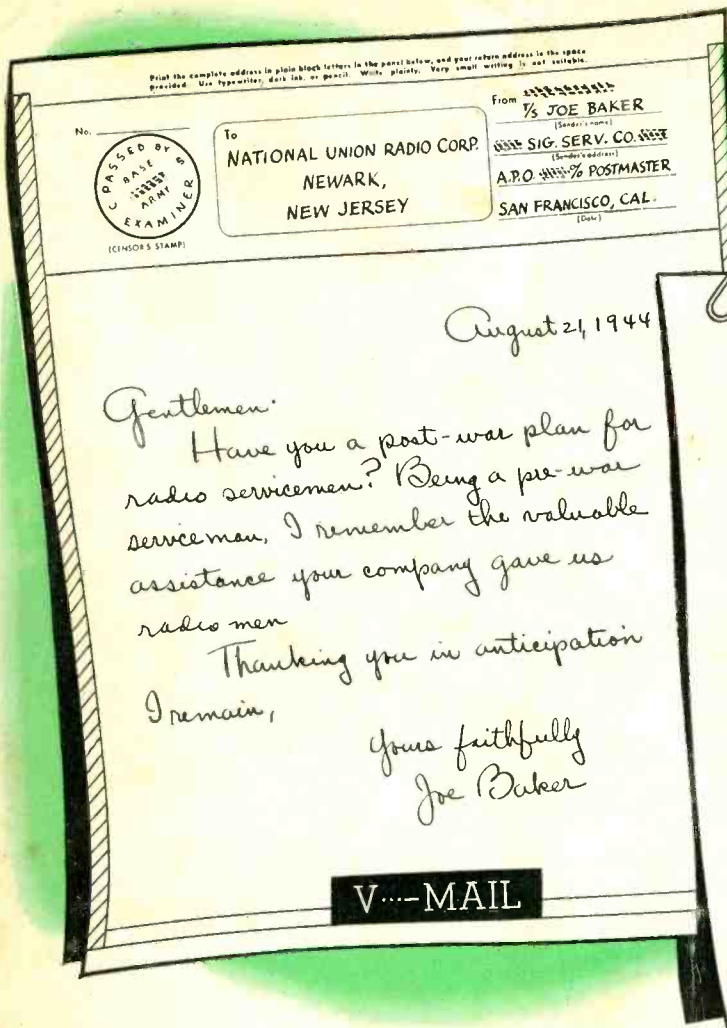 Print the complete address in plain block letters in the panel below, and your return address in the space
provided. Use typewriter, dark ink, or pencil. Write plainly. Very small writing is not suitable.
No.
PASSED BY
BASE
ARMY
EXAMINER
(CENSOR'S STAMP)
To
NATIONAL UNION RADIO CORP.
NEWARK,
NEW JERSEY
From
T/5 JOE BAKER
(Sender's name)
SIG. SERV. CO.
(Sender's address)
A.P.O. % POSTMASTER
SAN FRANCISCO, CAL.
(Date)
August 21, 1944
Gentlemen:
Have you a post-war plan for
radio servicemen? Being a pre-war
serviceman, I remember the valuable
assistance your company gave us
radio men
Thanking you in anticipation
I remain,
Yours faithfully
Joe Baker
V···–MAIL